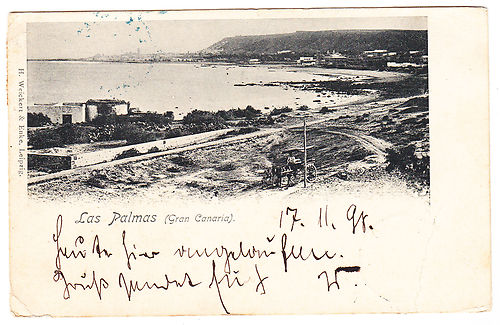 H. Weickert & Enke, Leipzig.
Las Palmas (Gran Canaria). 17. 11. 98.
Heute hier angelaufen.
Gruß sendet Euch W.